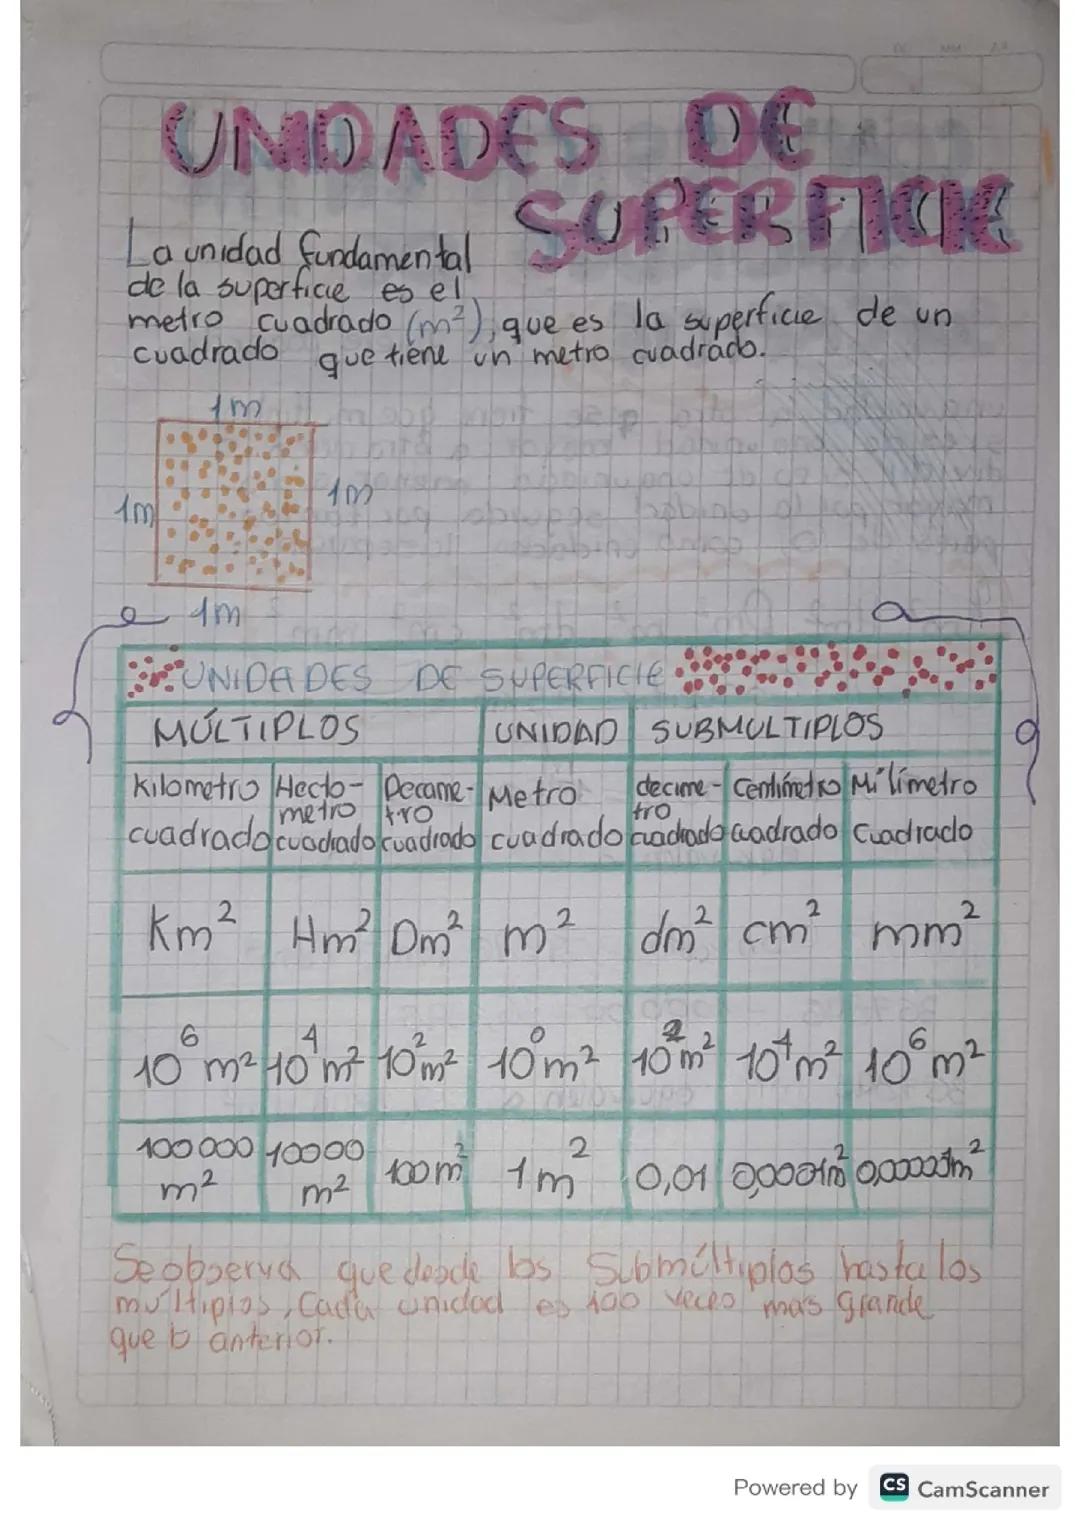 UNIDADES DE
SUPERFICIE
La unidad fundamental
de la superficie es el
metro cuadrado (m²), que es la superficie de un
cuadrado que tiene un metro cuadrado.
1m
1m
1m
1m
UNIDADES DE SUPERFICIE
MÚLTIPLOS UNIDAD SUBMULTIPLOS
Kilometro cuadrado Hecto-metro cuadrado Decame-tro cuadrado Metro cuadrado decime-tro cuadrado Centímetro cuadrado Milímetro cuadrado
Km² Hm² Dm² m² dm² cm² mm²
10⁶ m² 10⁴ m² 10² m² 10⁰ m² 10² m² 10⁴ m² 10⁶ m²
100000 m² 10000 m² 100 m² 1 m² 0,01 0,0001m² 0,000001m²
Se observa que desde los Submúltiplos hasta los
múltiplos, Cada unidad es 100 veces más grande
que lo anterior.
Powered by CS CamScanner